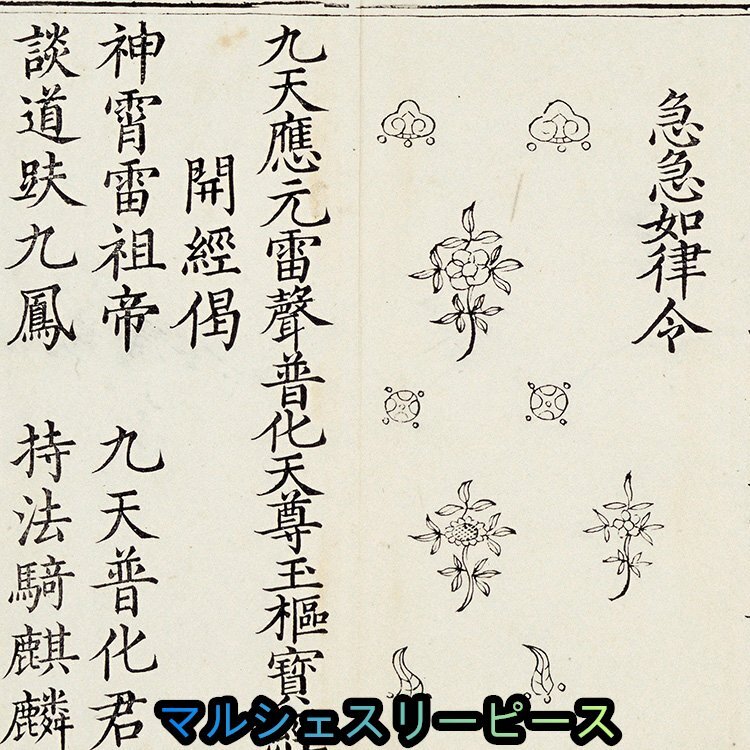 急急如律令
九天應元雷聲普化天尊玉樞寶經
開經偈
神霄雷祖帝 九天普化君
談道趺九鳳 持法騎麒麟
マルシェスリーピース